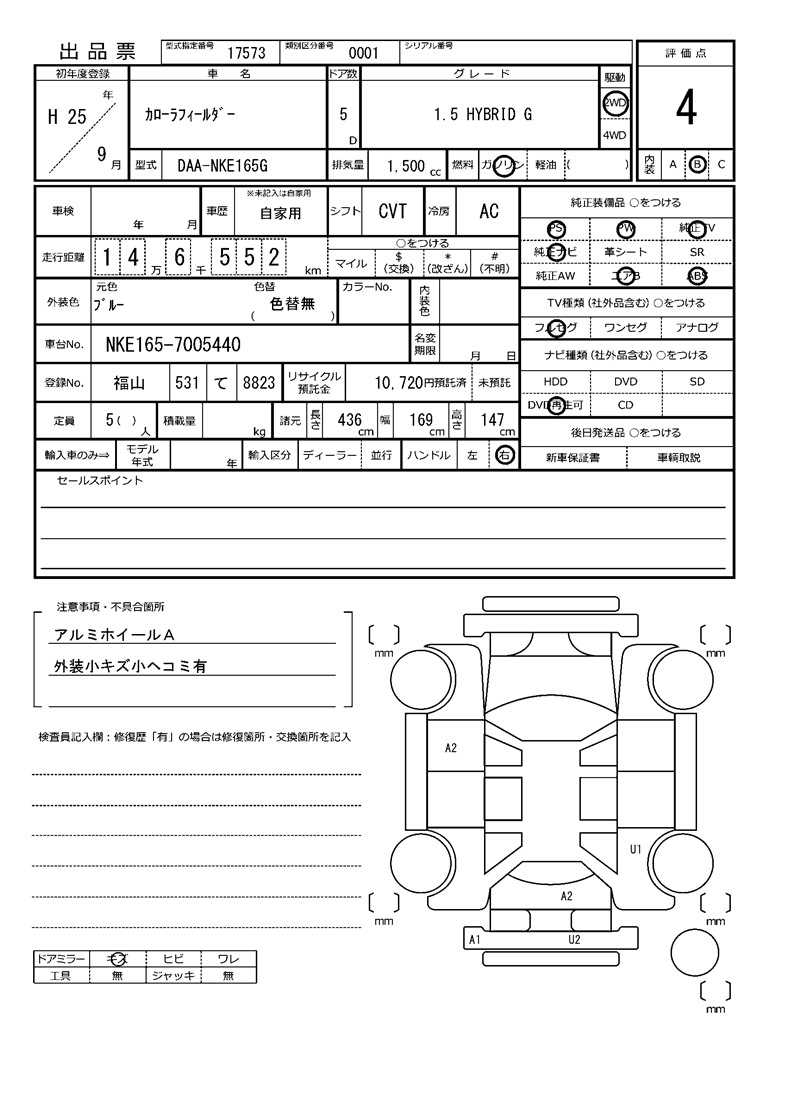 出品票 型式指定番号 17573 類別区分番号 0001 シリアル番号
初年度登録 車 名 ドア数 グレード 駆動 評価点
H 25 年 9 月 カローラフィールダー 5 D 1.5 HYBRID G 2WD 4WD 4
型式 DAA-NKE165G 排気量 1,500 cc 燃料 ガソリン 軽油 ( ) 内装 A B C
車検 年 月 車歴 ※未記入は自家用 自家用 シフト CVT 冷房 AC 純正装備品 ○をつける
PS PW 純正TV
走行距離 1 4 万 6 千 5 5 2 km ○をつける
マイル $ (交換) * (改ざん) # (不明)
純正ナビ 革シート SR
純正AW エアB ABS
外装色 元色 ブルー 色替 色替無 ( ) カラーNo. 内装色
TV種類(社外品含む)○をつける
フルセグ ワンセグ アナログ
車台No. NKE165-7005440 名変期限 月 日
ナビ種類(社外品含む)○をつける
登録No. 福山 531 て 8823 リサイクル預託金 10,720円預託済 未預託
HDD DVD SD
DVD再生可 CD
定員 5( ) 人 積載量 kg 諸元 長さ 436 cm 幅 169 cm 高さ 147 cm
後日発送品 ○をつける
輸入車のみ⇒ モデル年式 年 輸入区分 ディーラー 並行 ハンドル 左 右
新車保証書 車輌取説
セールスポイント
注意事項・不具合箇所
アルミホイールA
外装小キズ小ヘコミ有
検査員記入欄：修復歴「有」の場合は修復箇所・交換箇所を記入
ドアミラー キズ ヒビ ワレ
工具 無 ジャッキ 無
mm mm
A2
U1
A2
mm mm
A1 U2
mm